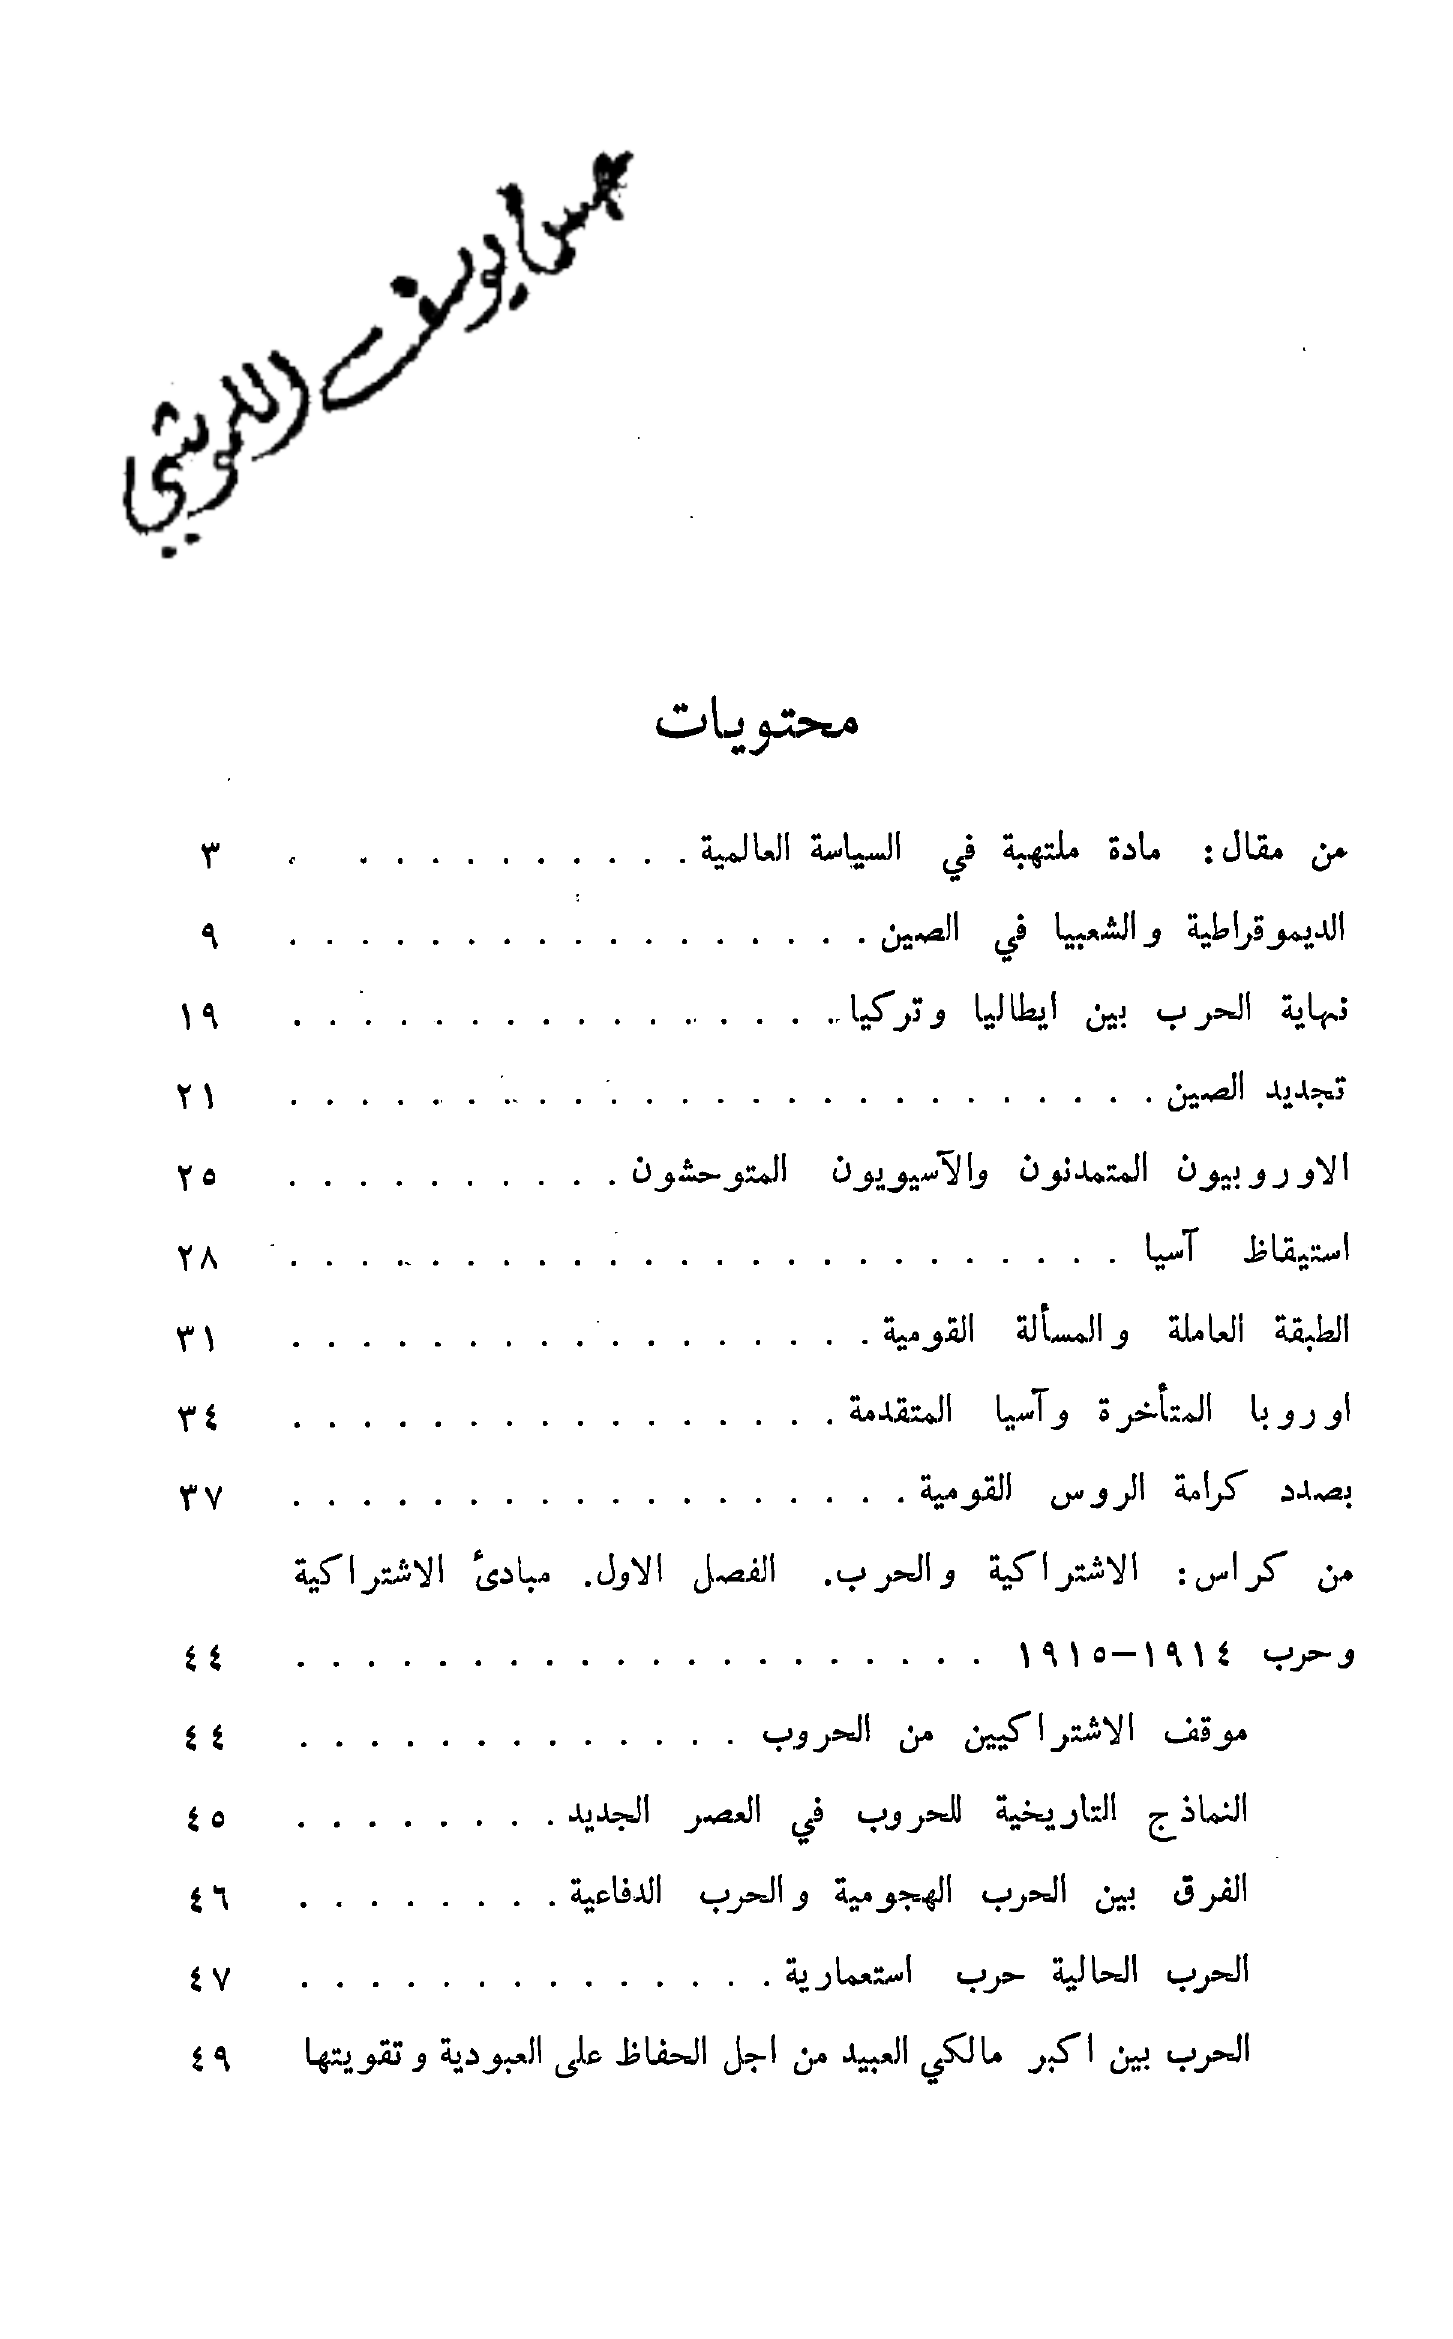 يوسف
محتويات
من مقال: مادة ملتهبة في السياسة العالمية . . . . . . . . . . . . ٣
الديموقراطية والشعبيا في الصين . . . . . . . . . . . . . . . . . ٩
نهاية الحرب بين ايطاليا وتركيا . . . . . . . . . . . . . . . . ١٩
تجديد الصين . . . . . . . . . . . . . . . . . . . . . . . . . ٢١
الاوروبيون المتمدنون والآسيويون المتوحشون . . . . . . . . . . ٢٥
استيقاظ آسيا . . . . . . . . . . . . . . . . . . . . . . . . ٢٨
الطبقة العاملة والمسألة القومية . . . . . . . . . . . . . . . . . ٣١
اوروبا المتأخرة وآسيا المتقدمة . . . . . . . . . . . . . . . . ٣٤
بصدد كرامة الروس القومية . . . . . . . . . . . . . . . . . . ٣٧
من كراس: الاشتراكية والحرب. الفصل الاول. مبادئ الاشتراكية
وحرب ١٩١٤–١٩١٥ . . . . . . . . . . . . . . . . . . . . ٤٤
موقف الاشتراكيين من الحروب . . . . . . . . . . . . . ٤٤
النماذج التاريخية للحروب في العصر الجديد . . . . . . . . ٤٥
الفرق بين الحرب الهجومية والحرب الدفاعية . . . . . . . . ٤٦
الحرب الحالية حرب استعمارية . . . . . . . . . . . . . . ٤٧
الحرب بين اكبر مالكي العبيد من اجل الحفاظ على العبودية وتقويتها ٤٩